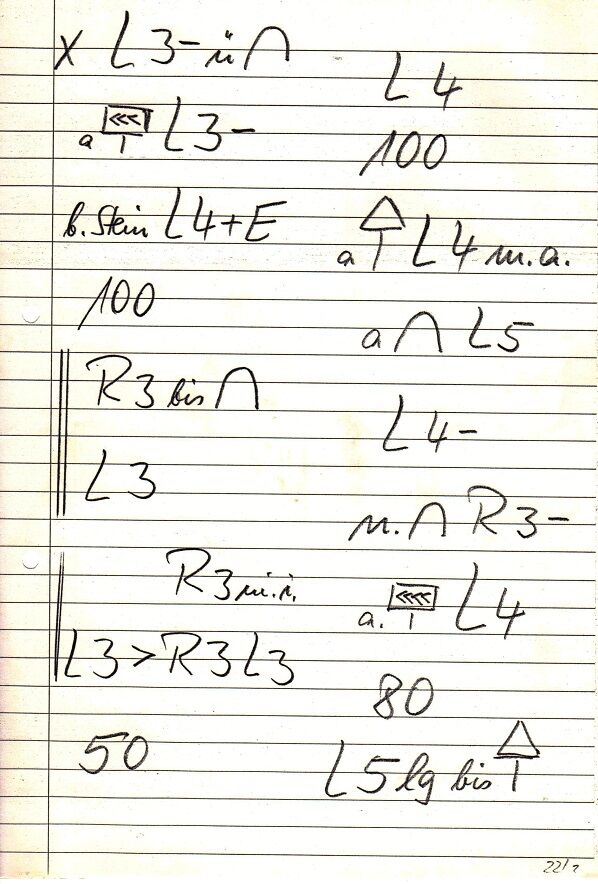 X L 3- ü ∩
a <<< L 3-
b. Stein L4+E
100
R3 bis ∩
L3
R3 m.i.
L3 > R3 L3
50
L4
100
a △ L4 m.a.
a ∩ L5
L4-
n. ∩ R3-
a. <<<< L4
80
L5 lg bis △